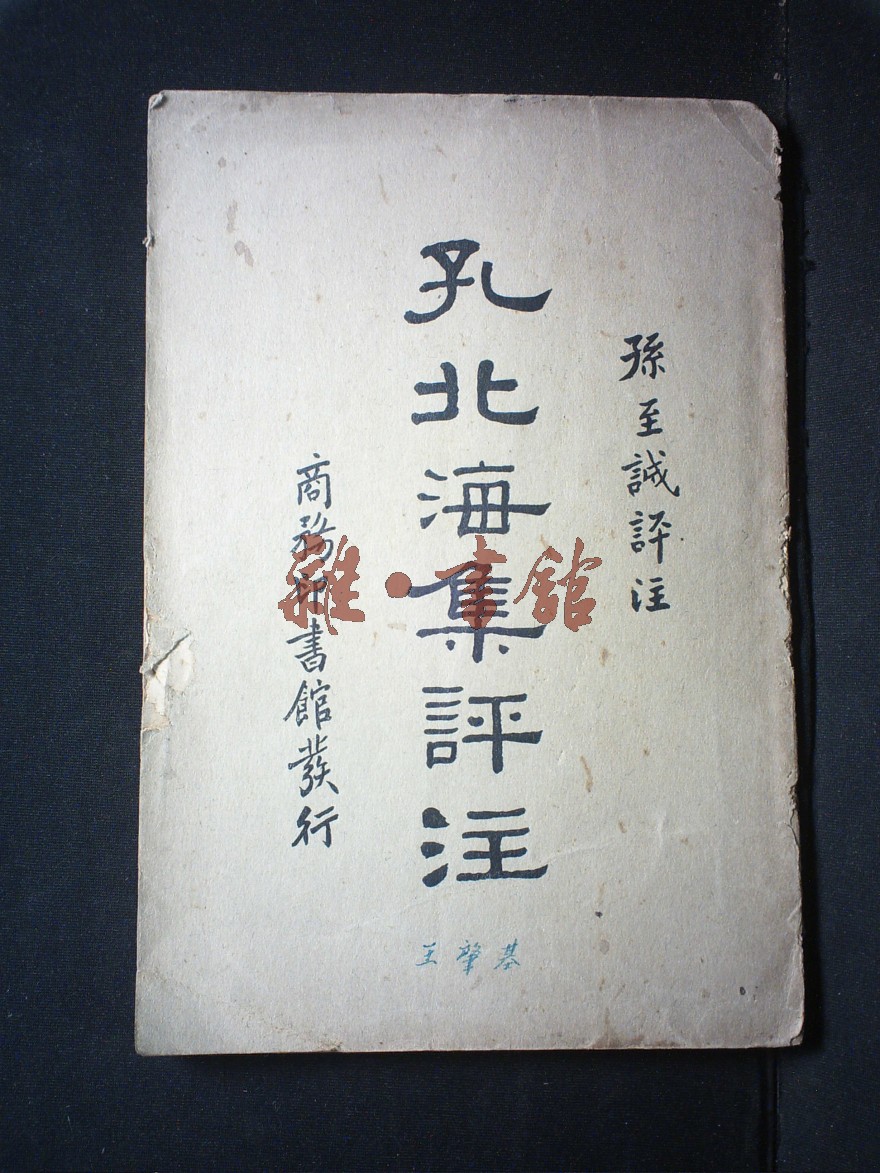 孫至誠評注
孔北海集評注
商務印書館發行
王肇基
雜·書館